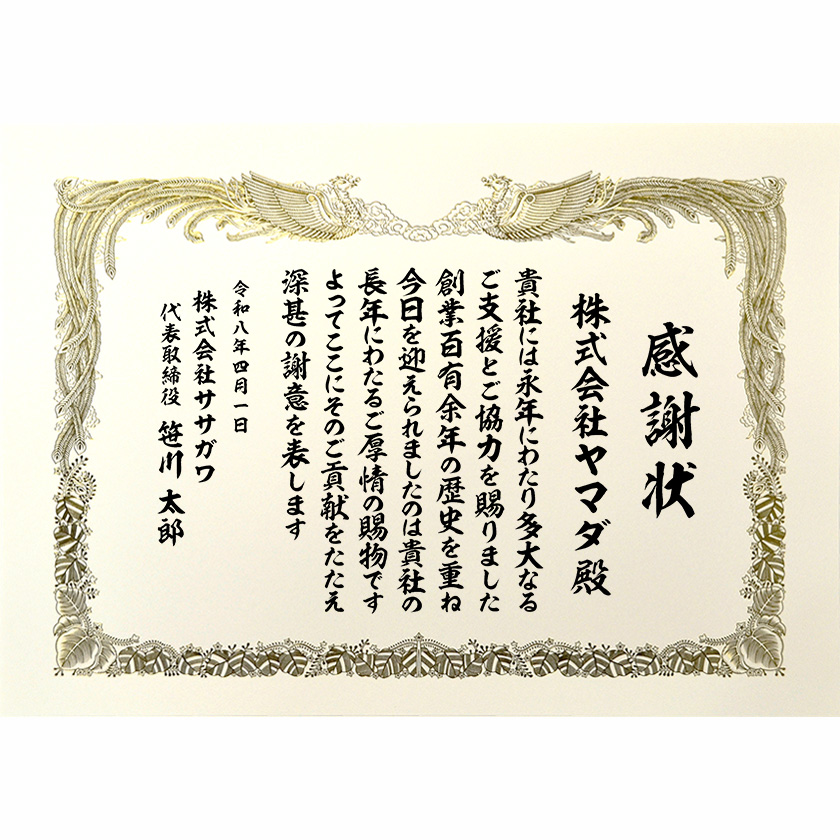 感謝状
株式会社ヤマダ殿
貴社には永年にわたり多大なる
ご支援とご協力を賜りました
創業百有余年の歴史を重ね
今日を迎えられましたのは貴社の
長年にわたるご厚情の賜物です
よってここにそのご貢献をたたえ
深甚の謝意を表します
令和八年四月一日
株式会社ササガワ
代表取締役 笹川太郎